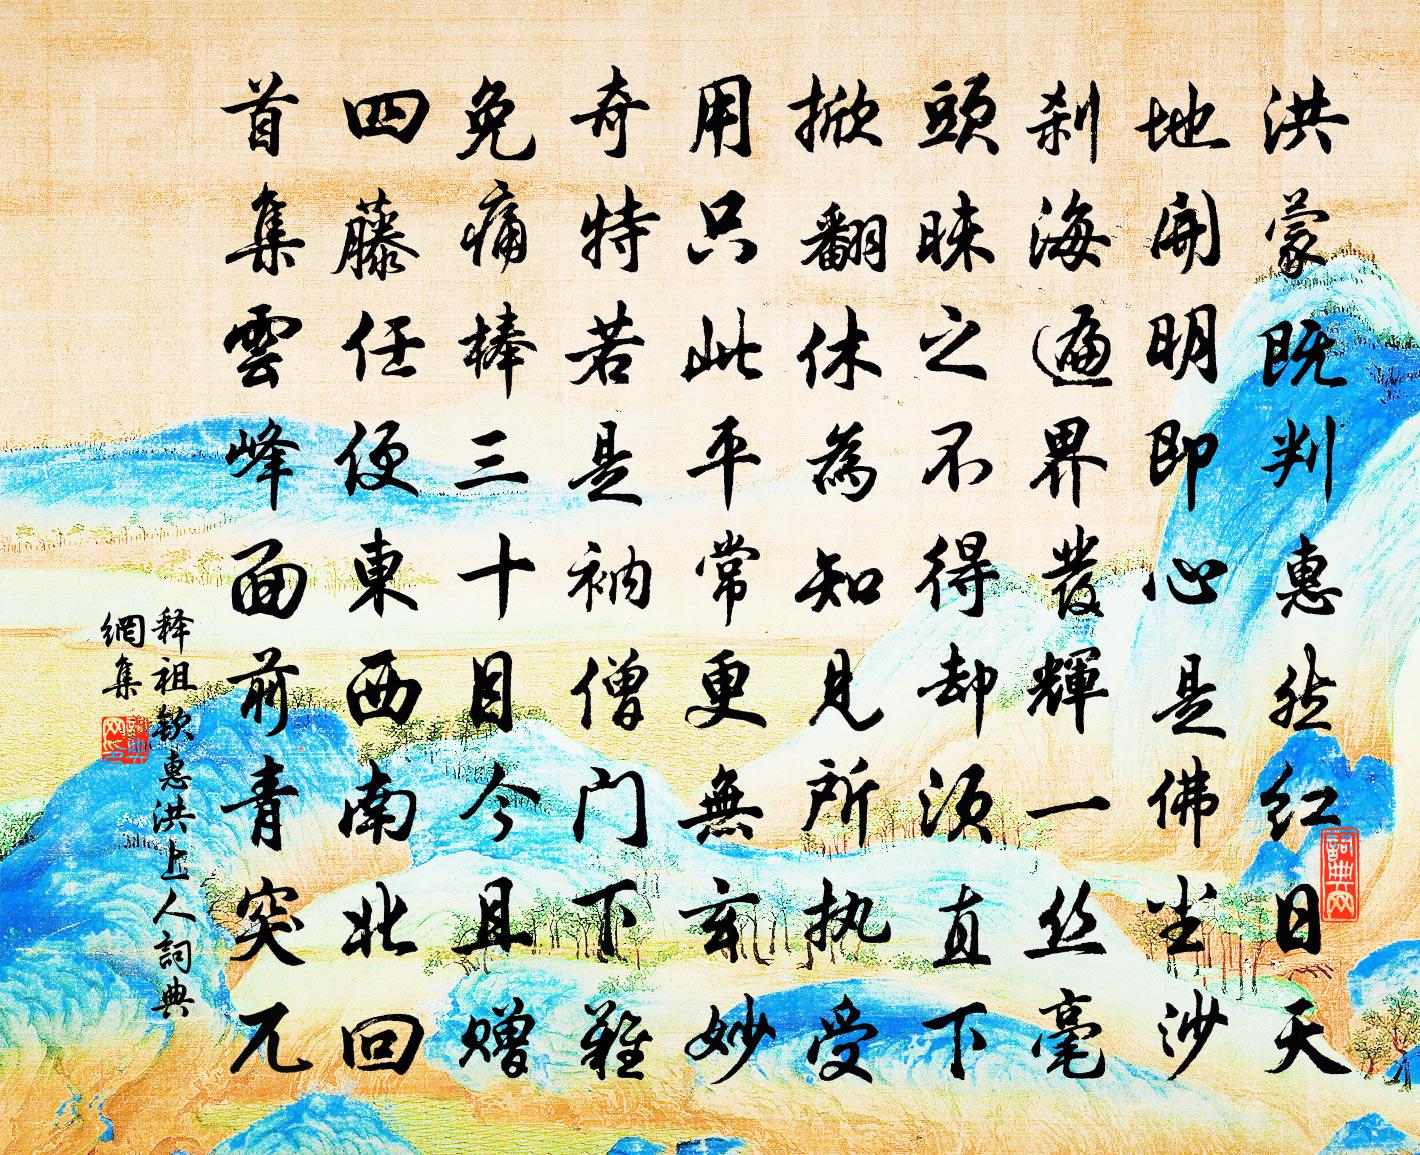 洪蒙既判惠然红日天
地開明即心是佛尘沙
刹海遍界發輝一丝毫
頭昧之不得却须直下
掀翻休為知見所执受
用只此平常更無玄妙
奇特若是衲僧门下難
免痛棒三十目今且赠
四藤任便東西南北回
首集雲峰面前青突兀
释祖钦惠洪上人詞典
網集
詞典网